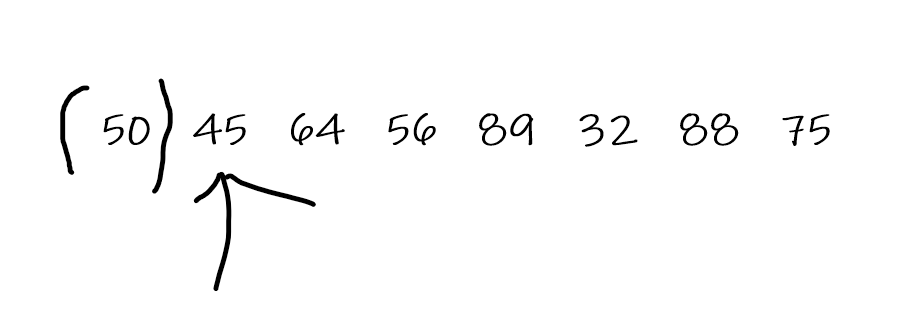 (50) 45 64 56 89 32 88 75